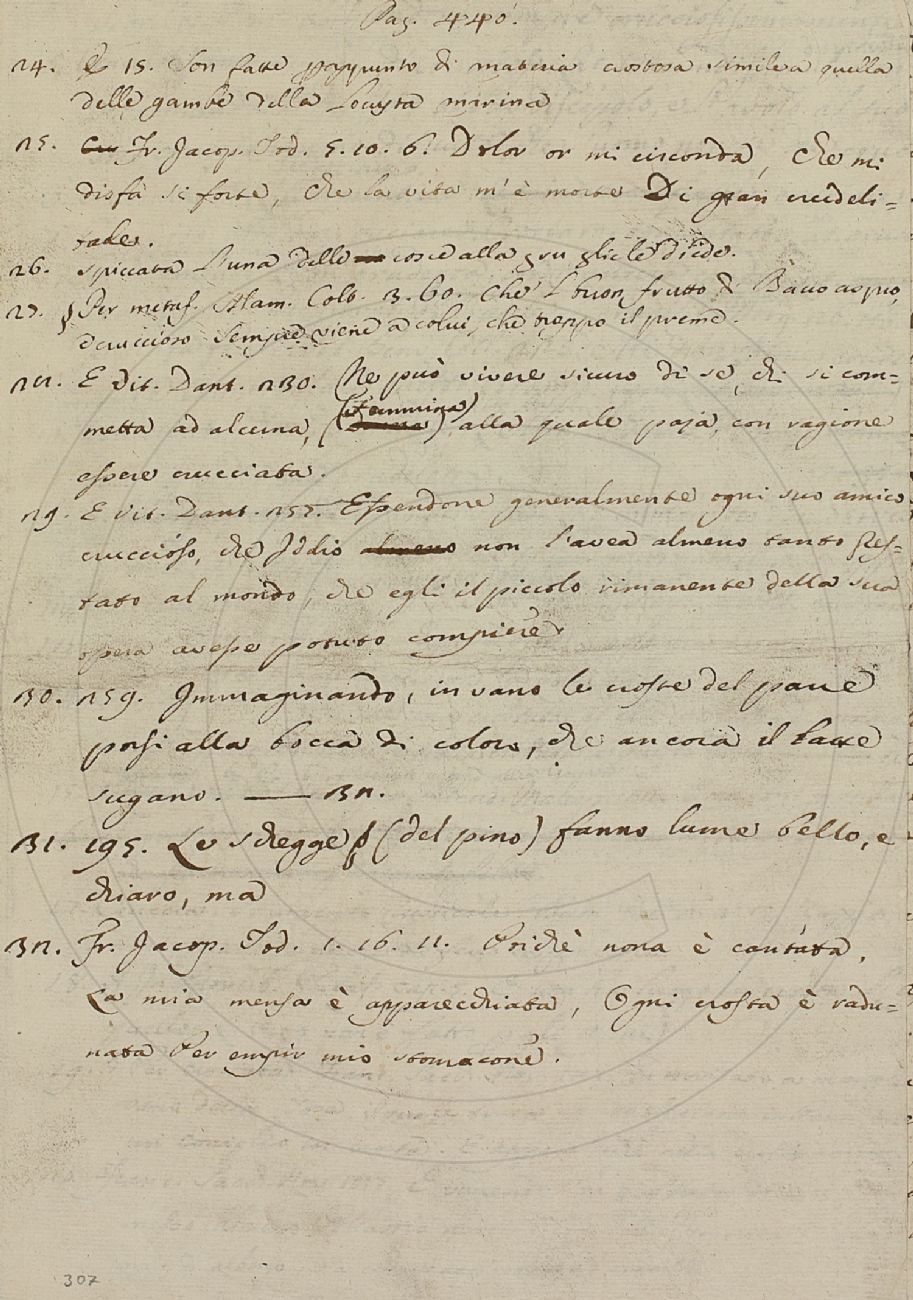 Pag. 440.
24. E 15. Son fatte pappunto di materia crostosa simile a quella
delle gambe della Locusta marina
25. Fr. Jacop. Tod. 5. 10. 6. Dolor or mi circonda, Che mi
disfà si forte, Che la vita m'è morte Di gran crudeli=
tade.
26. spiccata l'una delle cosce alla gru gliele diede.
27. § Per metaf. Alam. Colt. 3. 60. Che 'l buon frutto di Bacco aspro,
e cruccioso Sempre viene a colui, che troppo il preme.
28. E Vit. Dant. 230. Ne può vivere sicuro di se, chi si com=
metta ad alcuna, (femmina) alla quale paja, con ragione
essere crucciata.
29. E Vit. Dant. 257. Essendone generalmente ogni suo amico
cruccioso, che Iddio almeno non l'avea almeno tanto pres=
tato al mondo, che egli il piccolo rimanente della sua
opera avesse potuto compiere.
30. 259. Immaginando, in vano le croste del pane
porsi alla bocca di coloro, che ancora il latte
sugano. —— 32.
31. 195. Le schegge (del pino) fanno lume bello, e
chiaro, ma
32. Fr. Jacop. Tod. 1. 16. 11. Poichè nona è cantata,
La mia mensa è apparecchiata, Ogni crosta è radu=
nata Per empir mio stomacone.
307